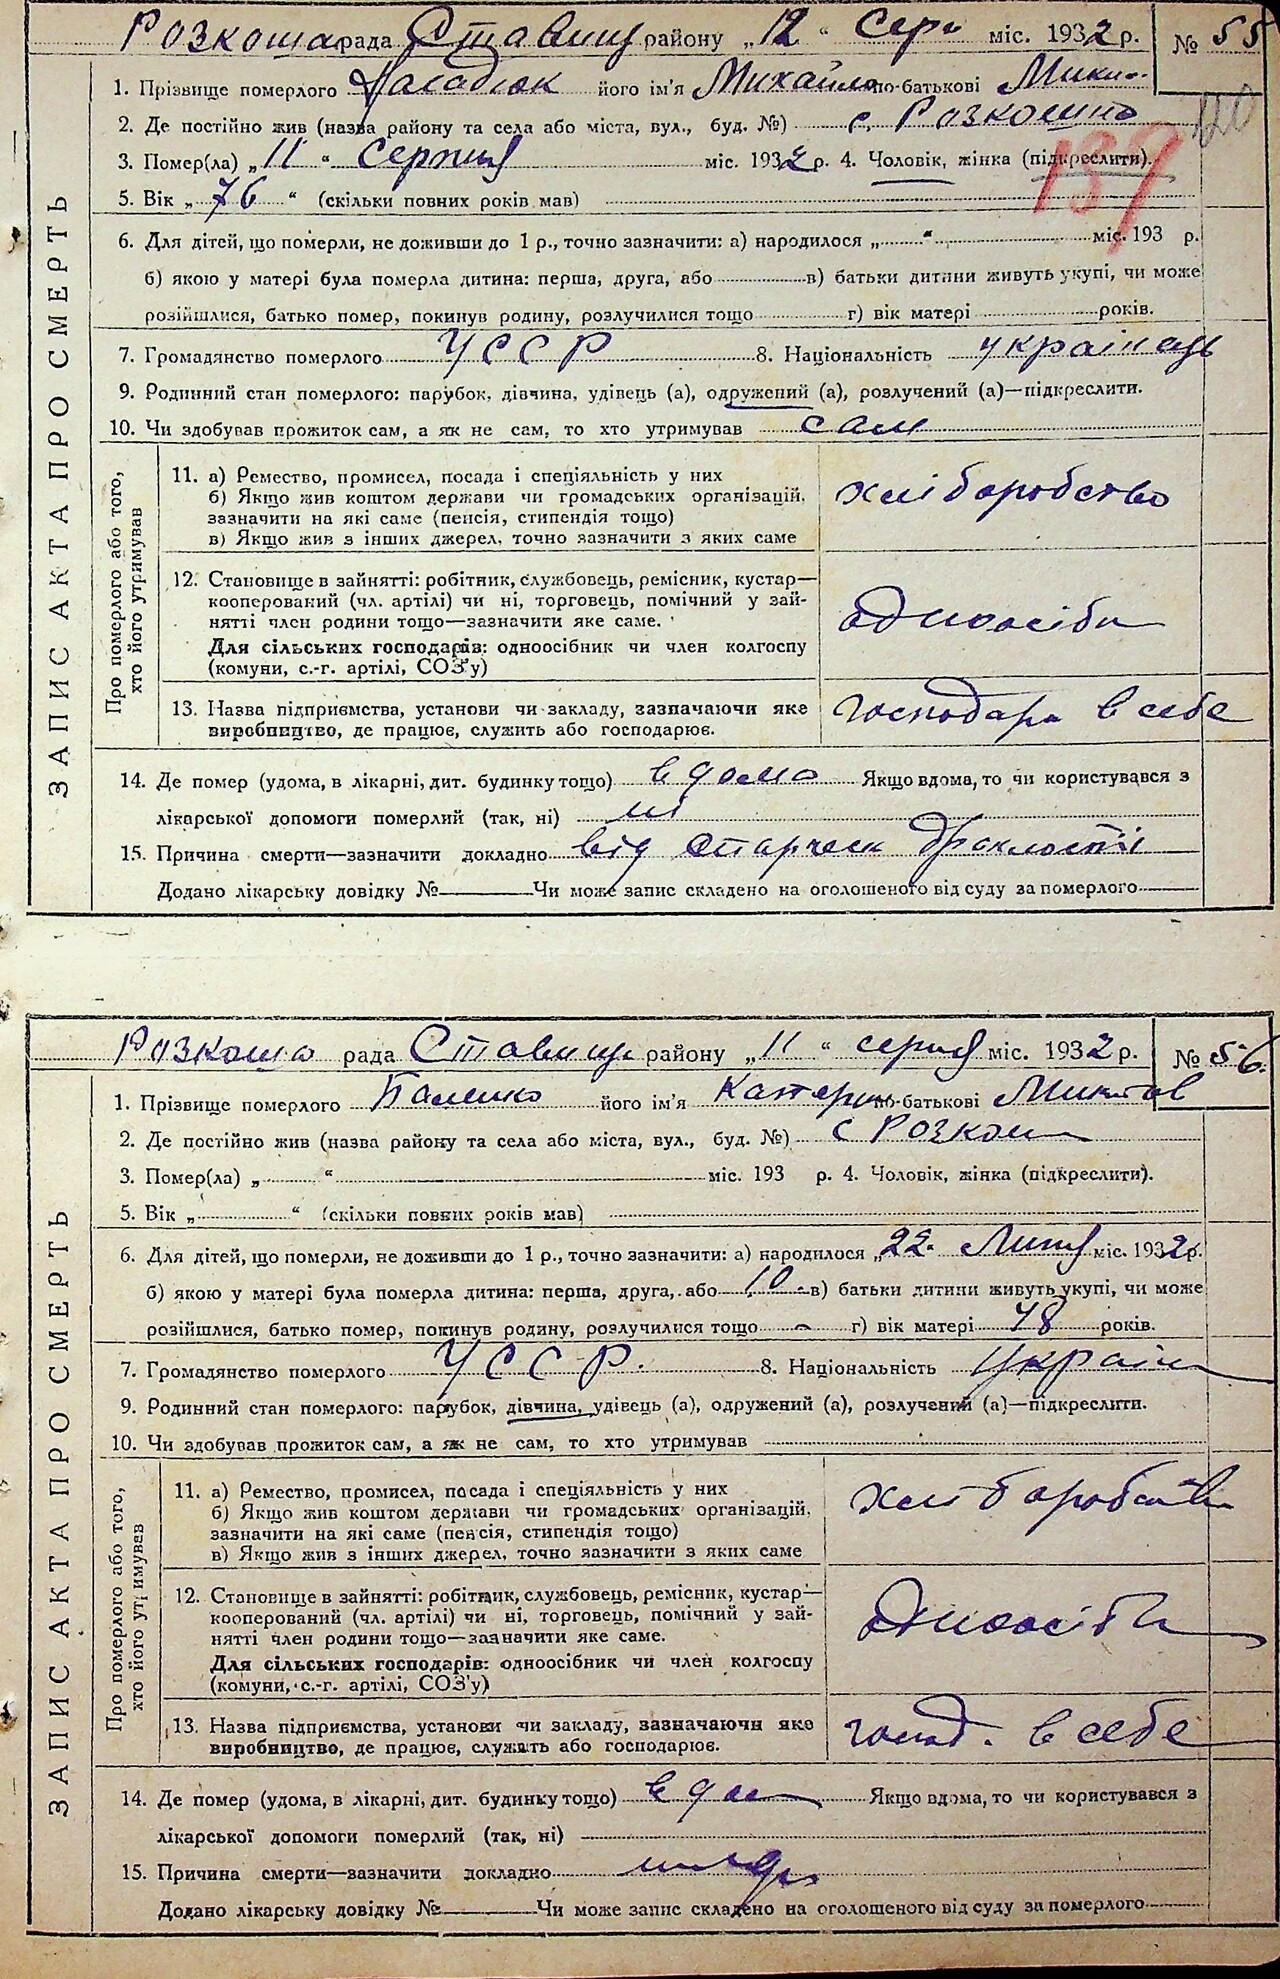 Розкоша рада Ставищ району „12“ Серп міс. 1932 р. № 55
1. Прізвище померлого його ім'я Михайло по-батькові Мики
2. Де постійно жив (назва району та села або міста, вул., буд. №) с. Розкошна
139
3. Помер(ла) „11“ Серпня міс. 1932 р. 4. Чоловік, жінка (підкреслити).
5. Вік „76“ (скільки повних років мав)
6. Для дітей, що померли, не доживши до 1 р., точно зазначити: а) народилося „ “ міс. 193 р.
б) якою у матері була померла дитина: перша, друга, або в) батьки дитини живуть укупі, чи може
розійшлися, батько помер, покинув родину, розлучилися тощо г) вік матері років.
7. Громадянство померлого УССР 8. Національність українець
9. Родинний стан померлого: парубок, дівчина, удівець (а), одружений (а), розлучений (а)—підкреслити.
10. Чи здобував прожиток сам, а як не сам, то хто утримував сам
ЗАПИС АКТА ПРО СМЕРТЬ
Про померлого або того,
хто його утримував
11. а) Ремество, промисел, посада і спеціяльність у них
б) Якщо жив коштом держави чи громадських організацій,
зазначити на які саме (пенсія, стипендія тощо)
в) Якщо жив з інших джерел, точно зазначити з яких саме
хліборобство
12. Становище в зайнятті: робітник, службовець, ремісник, кустар—
кооперований (чл. артілі) чи ні, торговець, помічний у зай-
нятті член родини тощо—зазначити яке саме.
Для сільських господарів: одноосібник чи член колгоспу
(комуни, с.-г. артілі, СОЗ'у)
одноосібн
13. Назва підприємства, установи чи закладу, зазначаючи яке
виробництво, де працює, служить або господарює.
господарю в себе
14. Де помер (удома, в лікарні, дит. будинку тощо) вдома Якщо вдома, то чи користувався з
лікарської допомоги померлий (так, ні) ні
15. Причина смерти—зазначити докладно від старческ дряхлости
Додано лікарську довідку № Чи може запис складено на оголошеного від суду за померлого
Розкоша рада Ставище району „11“ серпня міс. 1932 р. № 56.
1. Прізвище померлого його ім'я Катерина по-батькові
2. Де постійно жив (назва району та села або міста, вул., буд. №) с Розкош
3. Помер(ла) „ “ міс. 193 р. 4. Чоловік, жінка (підкреслити).
5. Вік „ “ (скільки повних років мав)
6. Для дітей, що померли, не доживши до 1 р., точно зазначити: а) народилося „22. Липня міс. 1932 р.
б) якою у матері була померла дитина: перша, друга, або 10 в) батьки дитини живуть укупі, чи може
розійшлися, батько помер, покинув родину, розлучилися тощо - г) вік матері 48 років.
7. Громадянство померлого УССР. 8. Національність Україн
9. Родинний стан померлого: парубок, дівчина, удівець (а), одружений (а), розлучений (а)—підкреслити.
10. Чи здобував прожиток сам, а як не сам, то хто утримував
ЗАПИС АКТА ПРО СМЕРТЬ
Про померлого або того,
хто його утримував
11. а) Ремество, промисел, посада і спеціяльність у них
б) Якщо жив коштом держави чи громадських організацій,
зазначити на які саме (пенсія, стипендія тощо)
в) Якщо жив з інших джерел, точно зазначити з яких саме
хліборобств
12. Становище в зайнятті: робітник, службовець, ремісник, кустар—
кооперований (чл. артілі) чи ні, торговець, помічний у зай-
нятті член родини тощо—зазначити яке саме.
Для сільських господарів: одноосібник чи член колгоспу
(комуни, с.-г. артілі, СОЗ'у)
одноосібн
13. Назва підприємства, установи чи закладу, зазначаючи яке
виробництво, де працює, служить або господарює.
господ. в себе
14. Де помер (удома, в лікарні, дит. будинку тощо) вдом Якщо вдома, то чи користувався з
лікарської допомоги померлий (так, ні)
15. Причина смерти—зазначити докладно
Додано лікарську довідку № Чи може запис складено на оголошеного від суду за померлого